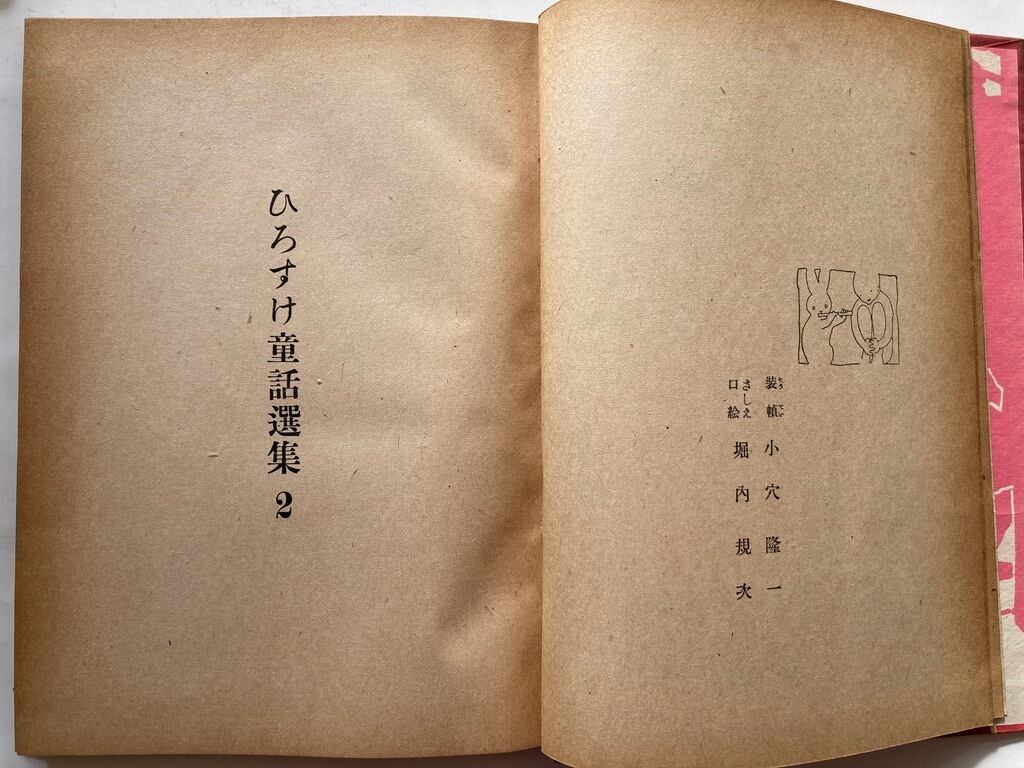 装幀 小穴隆一
さしえ
口絵 堀内規次
ひろすけ童話選集 2